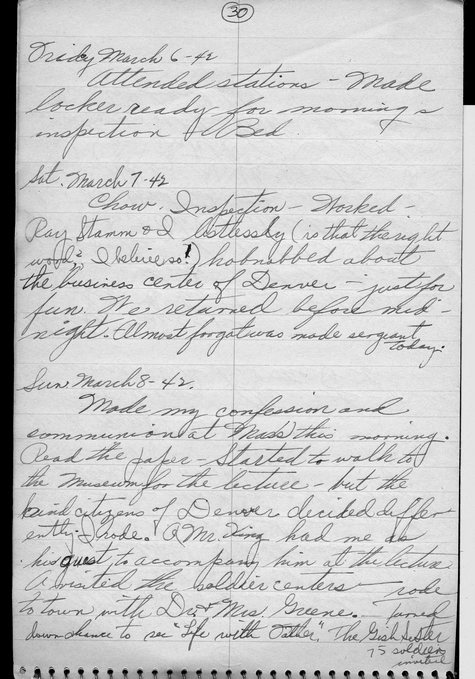 30
Friday March 6-42
Attended stations - Made
locker ready for morning's
inspection & Bed.
Sat. March 7-42
Chow. Inspection - Worked -
Ray Stamm & I listlessly (is that the right
word? I believe so!) hobnobbed about
the business center of Denver - just for
fun. We returned before mid-
night. Almost forgot was made sergeant
today.
Sun March 8-42.
Made my confession and
communion at Mass this morning.
Read the paper - Started to walk to
the museum for the lecture - but the
kind citizens of Denver decided differ-
ently. I rode. A Mr. King had me as
his guest, to accompany him at the lecture
& visited the soldier centers - rode
to town with Dr & Mrs Greene. Turned
down chance to see "Life with Father", The Gish Sister
75 soldiers
invited